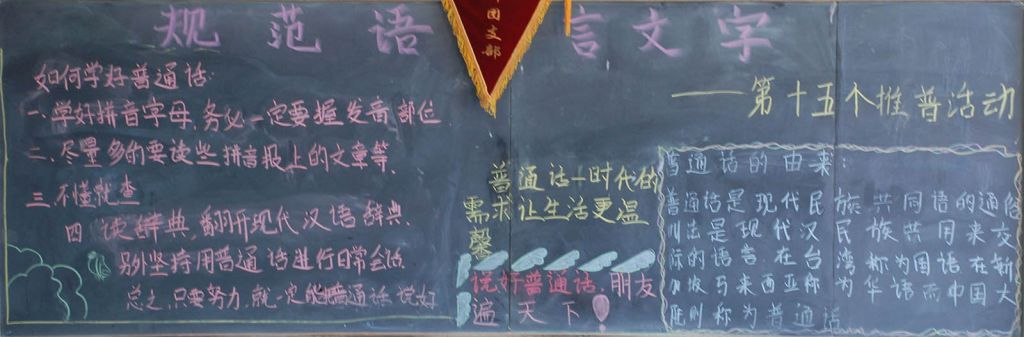 规范语言文字
团支部
——第十五个推普活动
如何学好普通话:
一.学好拼音字母,务必一定要握发音部位
二、尽量多的要读些拼音报上的文章等、
三、不懂就查
四 读辞典,翻开现代汉语辞典、
另外坚持用普通话进行日常会话
总之,只要努力,就一定能把普通话说好
普通话—时代的
需求让生活更温
馨
说好普通话,朋友
遍天下!
普通话的由来:
普通话是现代民族共同语的通俗
叫法是现代汉民族共用来交
际的语言.在台湾称为国语在新
加坡马来西亚称为华语而中国大
陆则称为普通话